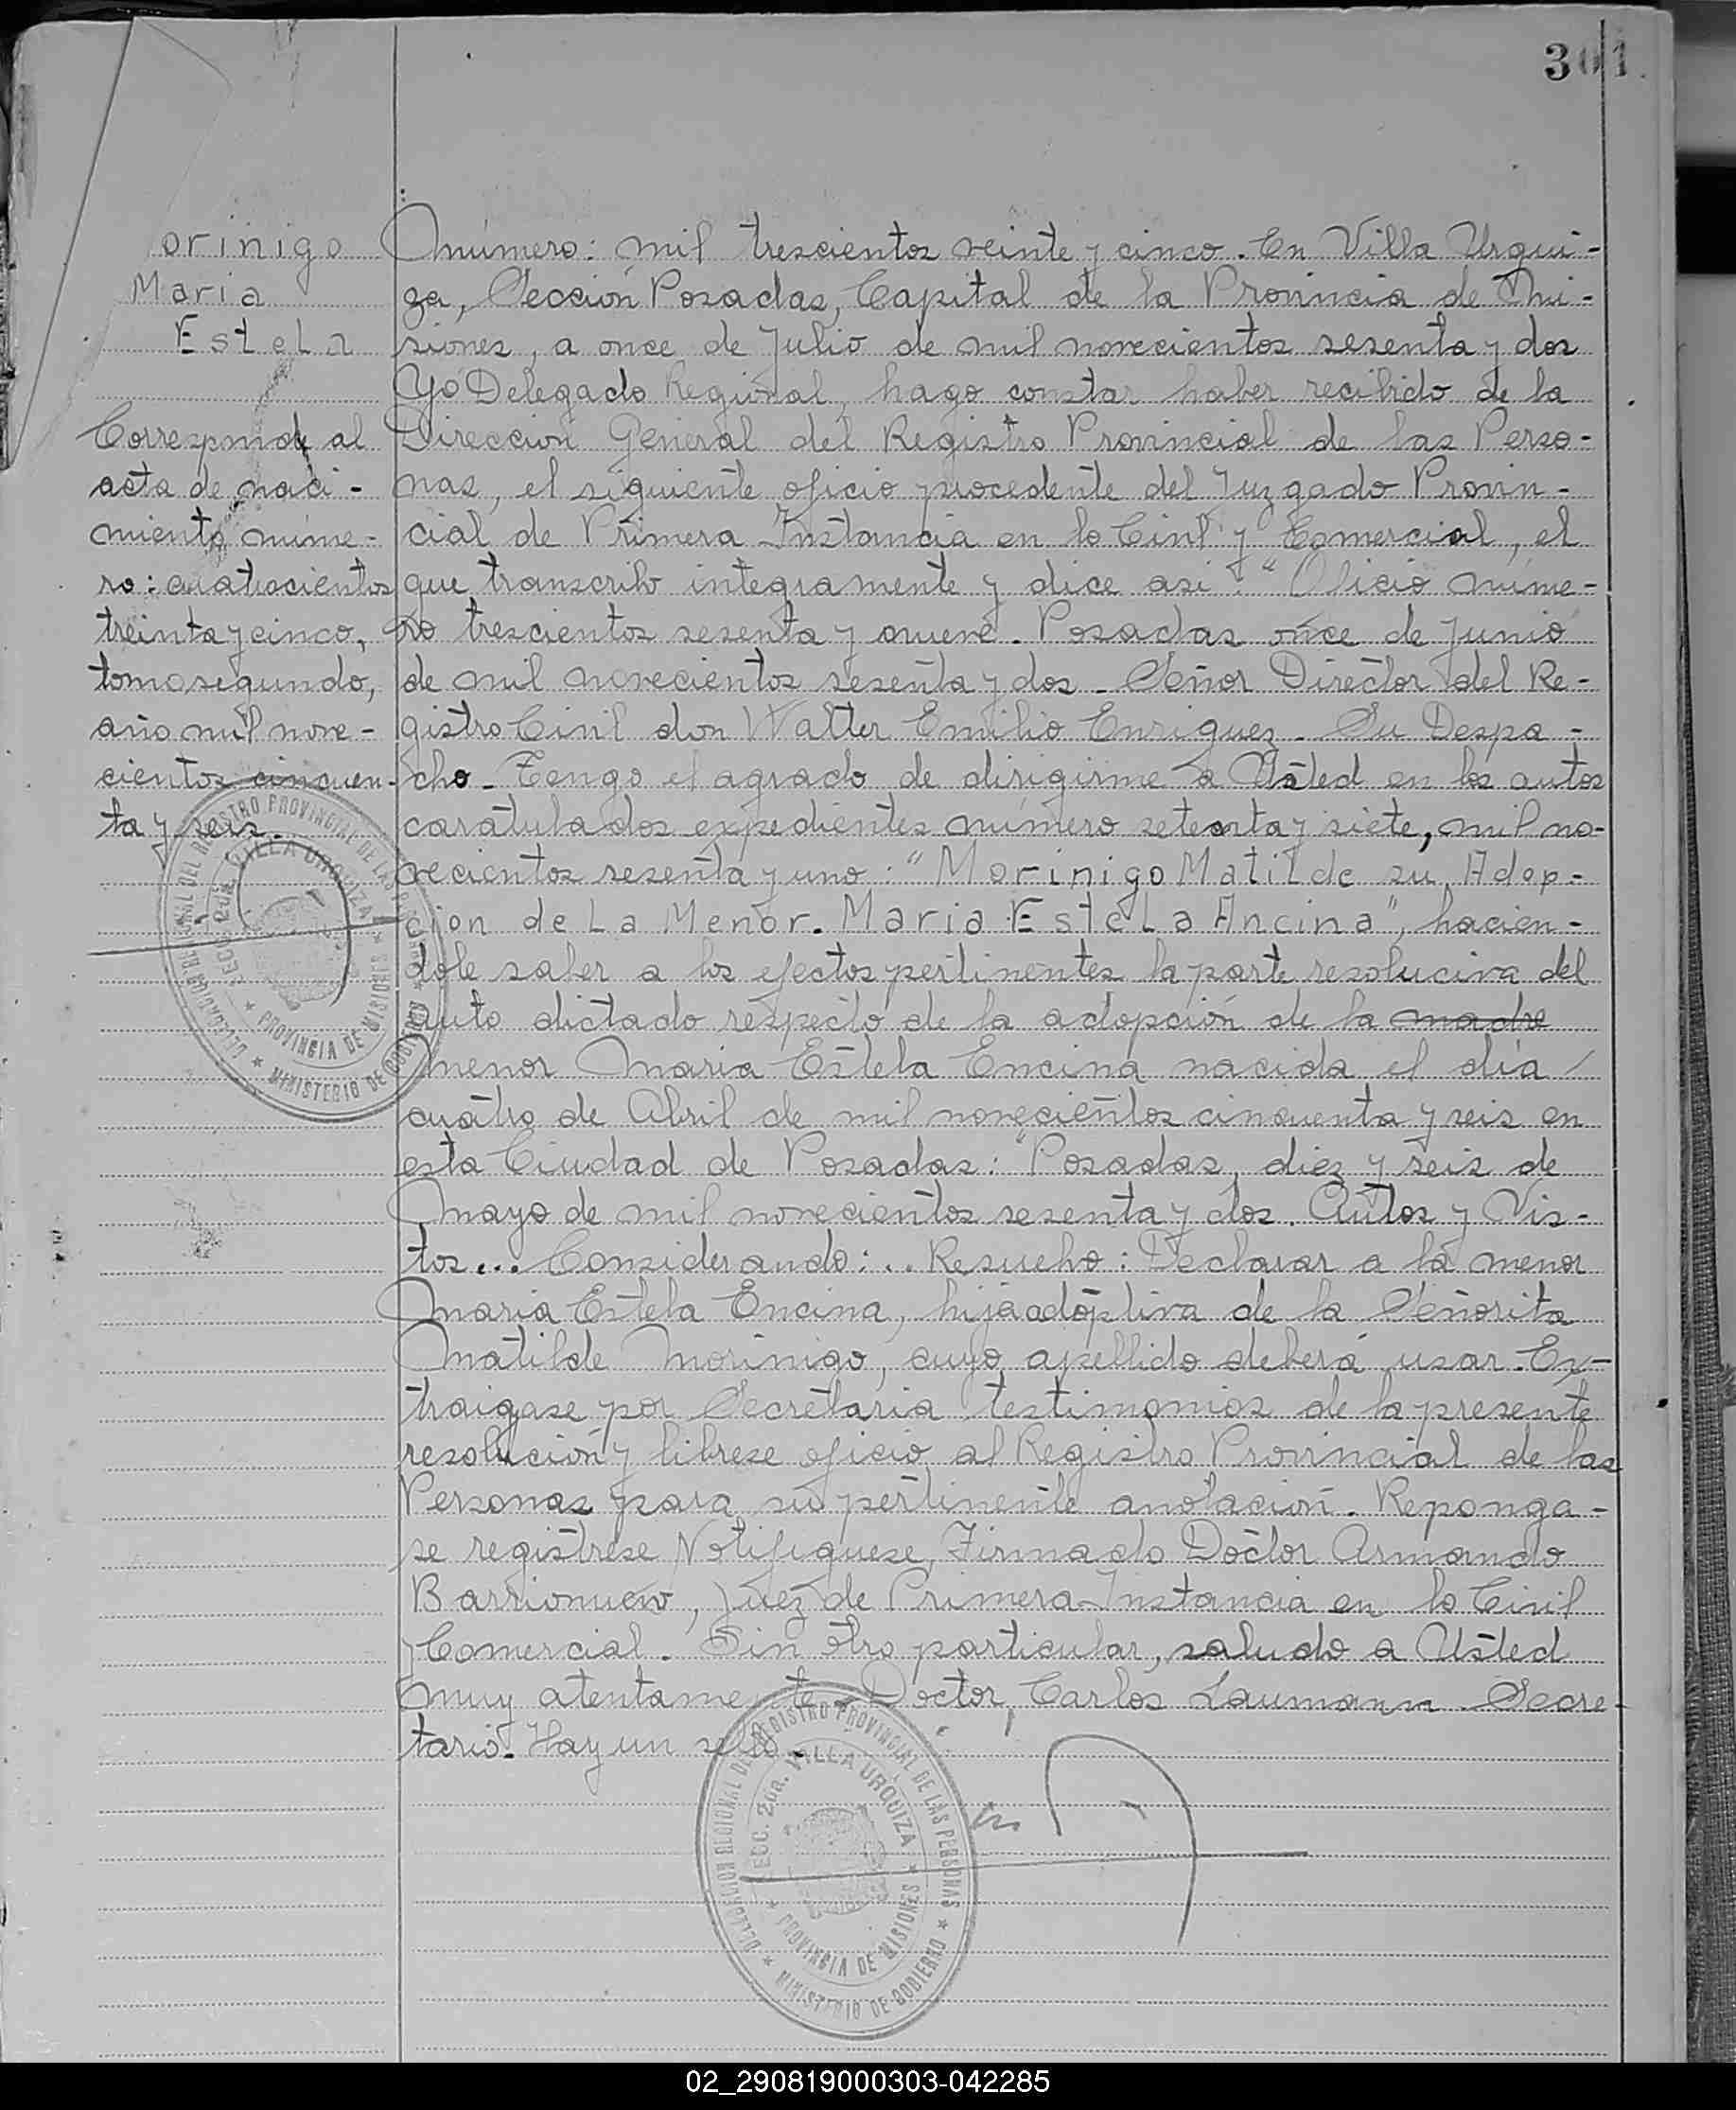 301
orinigo
Maria
Estela
Corresponde al
acta de naci-
miento núme-
ro: cuatrocientos
treinta y cinco,
tomo segundo,
año mil nove-
cientos cincuen-
ta y seis.
número: mil trescientos veinte y cinco. En Villa Urqui-
za, Sección Posadas, Capital de la Provincia de Mi-
siones, a once de Julio de mil novecientos sesenta y dos
Yo Delegado Regional, hago constar haber recibido de la
Dirección General del Registro Provincial de las Perso-
nas, el siguiente oficio procedente del Juzgado Provin-
cial de Primera Instancia en lo Civil y Comercial, el
que transcribo integramente y dice asi: "Oficio núme-
ro trescientos sesenta y nueve. Posadas once de Junio
de mil novecientos sesenta y dos. Señor Director del Re-
gistro Civil don Walter Emilio Enriquez. Su Despa-
cho. Tengo el agrado de dirigirme a Usted en los autos
caratulados expedientes número setenta y siete, mil no-
vecientos sesenta y uno: "Morinigo Matilde su Adop-
cion de La Menor. Maria Estela Ancina", hacien-
dole saber a los efectos pertinentes la parte resolutiva del
auto dictado respecto de la adopción de la madre
menor Maria Estela Encina nacida el día
cuatro de Abril de mil novecientos cincuenta y seis en
esta Ciudad de Posadas: "Posadas, diez y seis de
Mayo de mil novecientos sesenta y dos. Autos y Vis-
tos... Considerando:.. Resuelvo: Declarar a la menor
Maria Estela Encina, hija adoptiva de la Señorita
Matilde Morinigo, cuyo apellido deberá usar. Ex-
traigase por Secretaria testimonios de la presente
resolución y librese oficio al Registro Provincial de las
Personas para su pertinente anotación. Reponga-
se registrese Notifiquese, Firmado Doctor Armando
Barrionuevo, Juez de Primera Instancia en lo Civil
y Comercial. Sin otro particular, saludo a Usted
muy atentamente. Doctor, Carlos Laumann. Secre-
tario. Hay un sello.
DELEGACION REGIONAL DEL REGISTRO PROVINCIAL DE LAS PERSONAS
SECC. 2da. VILLA URQUIZA
PROVINCIA DE MISIONES
MINISTERIO DE GOBIERNO
DELEGACION REGIONAL DEL REGISTRO PROVINCIAL DE LAS PERSONAS
SECC. 2da. VILLA URQUIZA
PROVINCIA DE MISIONES
MINISTERIO DE GOBIERNO
02_290819000303-042285